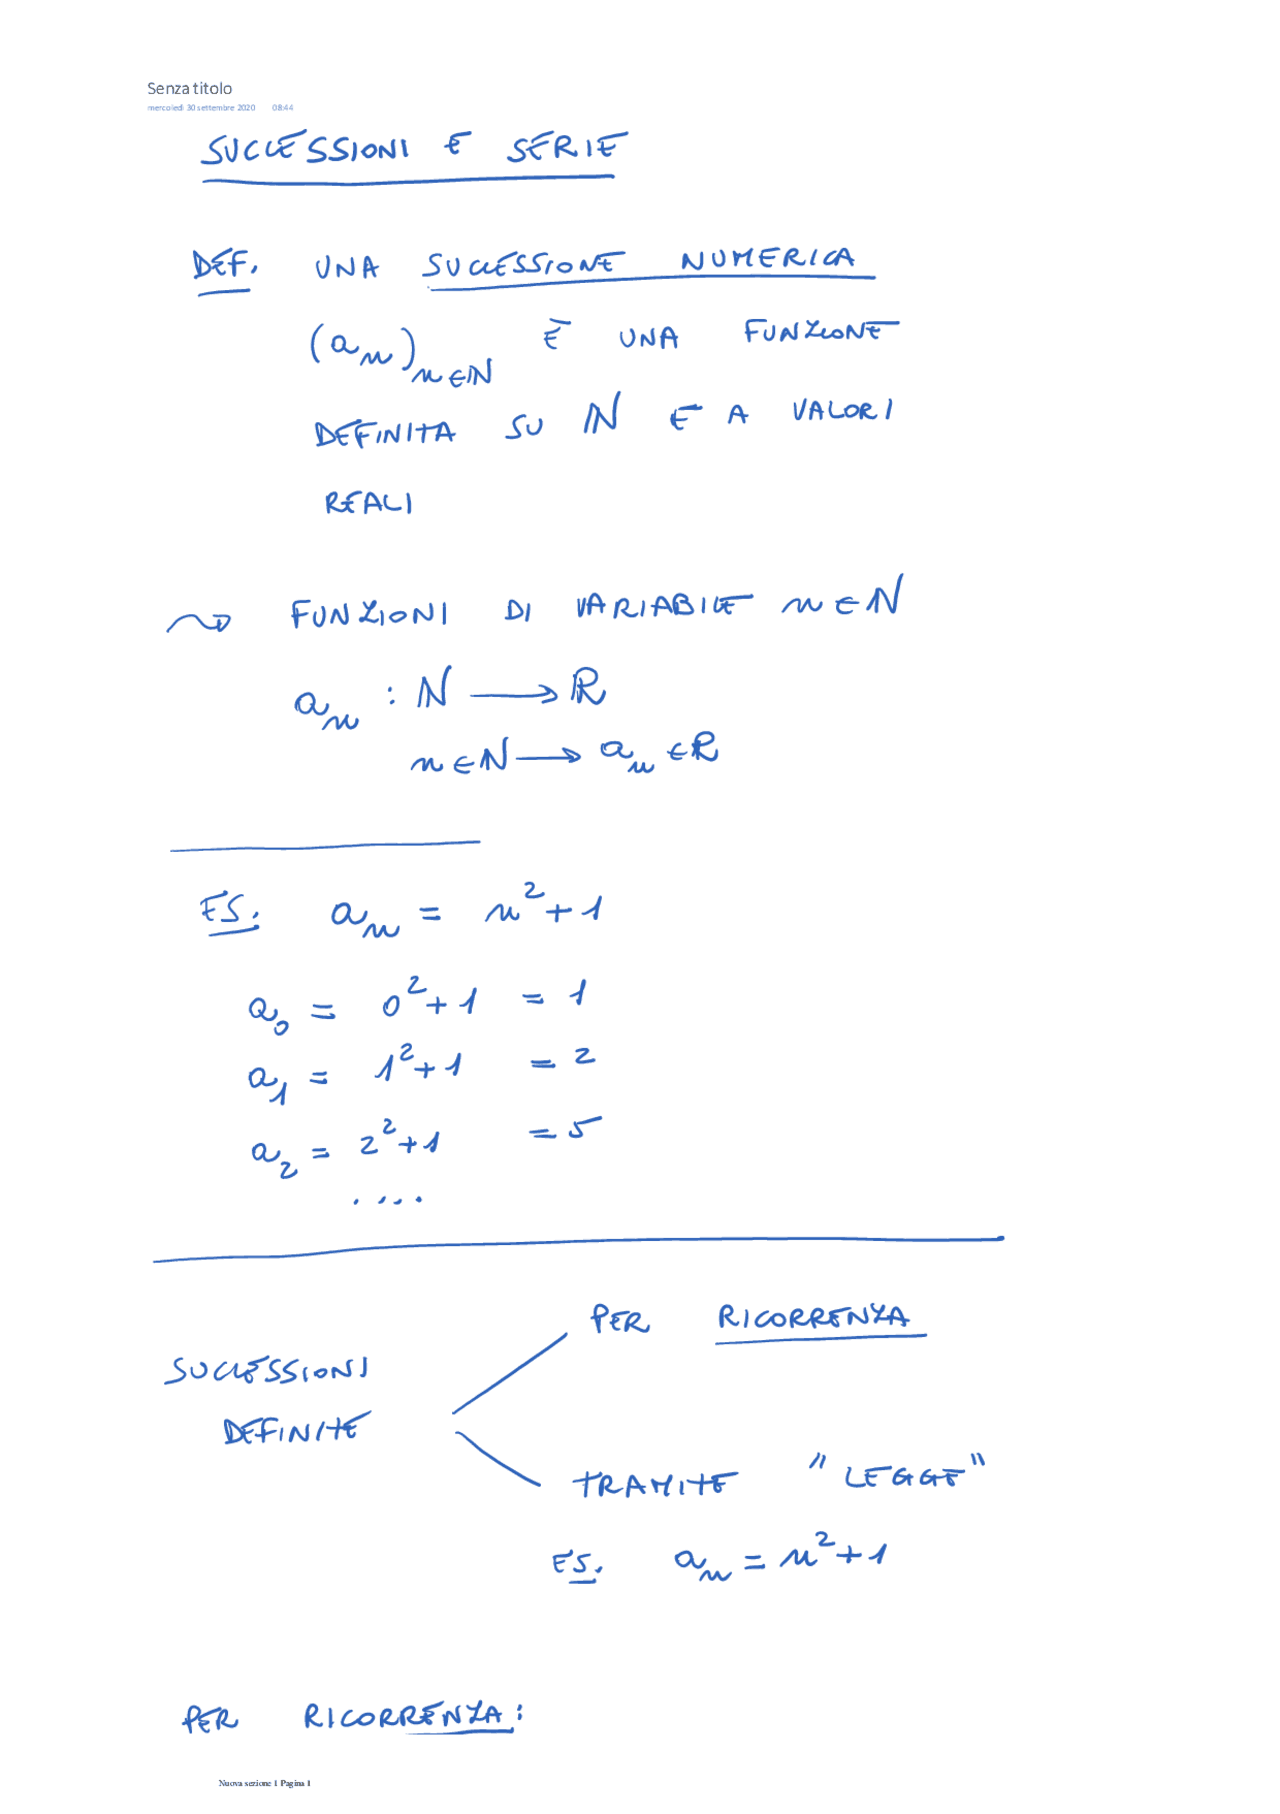 Senza titolo
mercoledì 30 settembre 2020 08:44
SUCCESSIONI E SERIE
DEF. UNA SUCCESSIONE NUMERICA
(aₙ)ₙ∈ℕ È UNA FUNZIONE
DEFINITA SU ℕ E A VALORI
REALI
⤳ FUNZIONI DI VARIABILE n∈ℕ
aₙ : ℕ ⟶ ℝ
n∈ℕ ⟶ aₙ∈ℝ
ES. aₙ = n²+1
a₀ = 0²+1 = 1
a₁ = 1²+1 = 2
a₂ = 2²+1 = 5
....
PER RICORRENZA
SUCCESSIONI
DEFINITE
TRAMITE "LEGGE"
ES. aₙ = n²+1
PER RICORRENZA:
Nuova sezione 1 Pagina 1